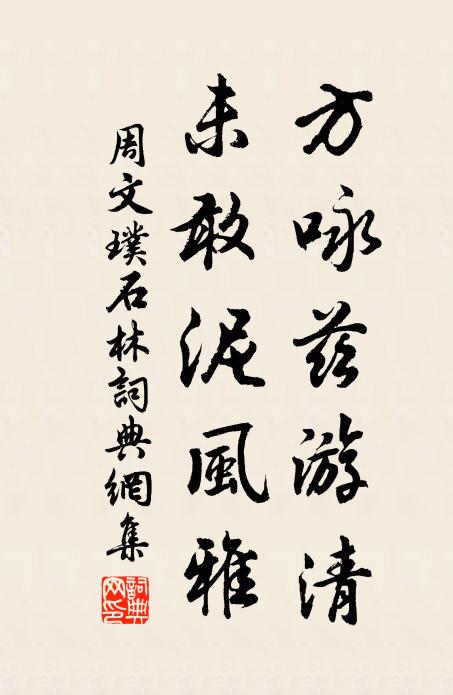 方咏兹游清
未敢泥風雅
周文璞石林詞典網集
詞典网印